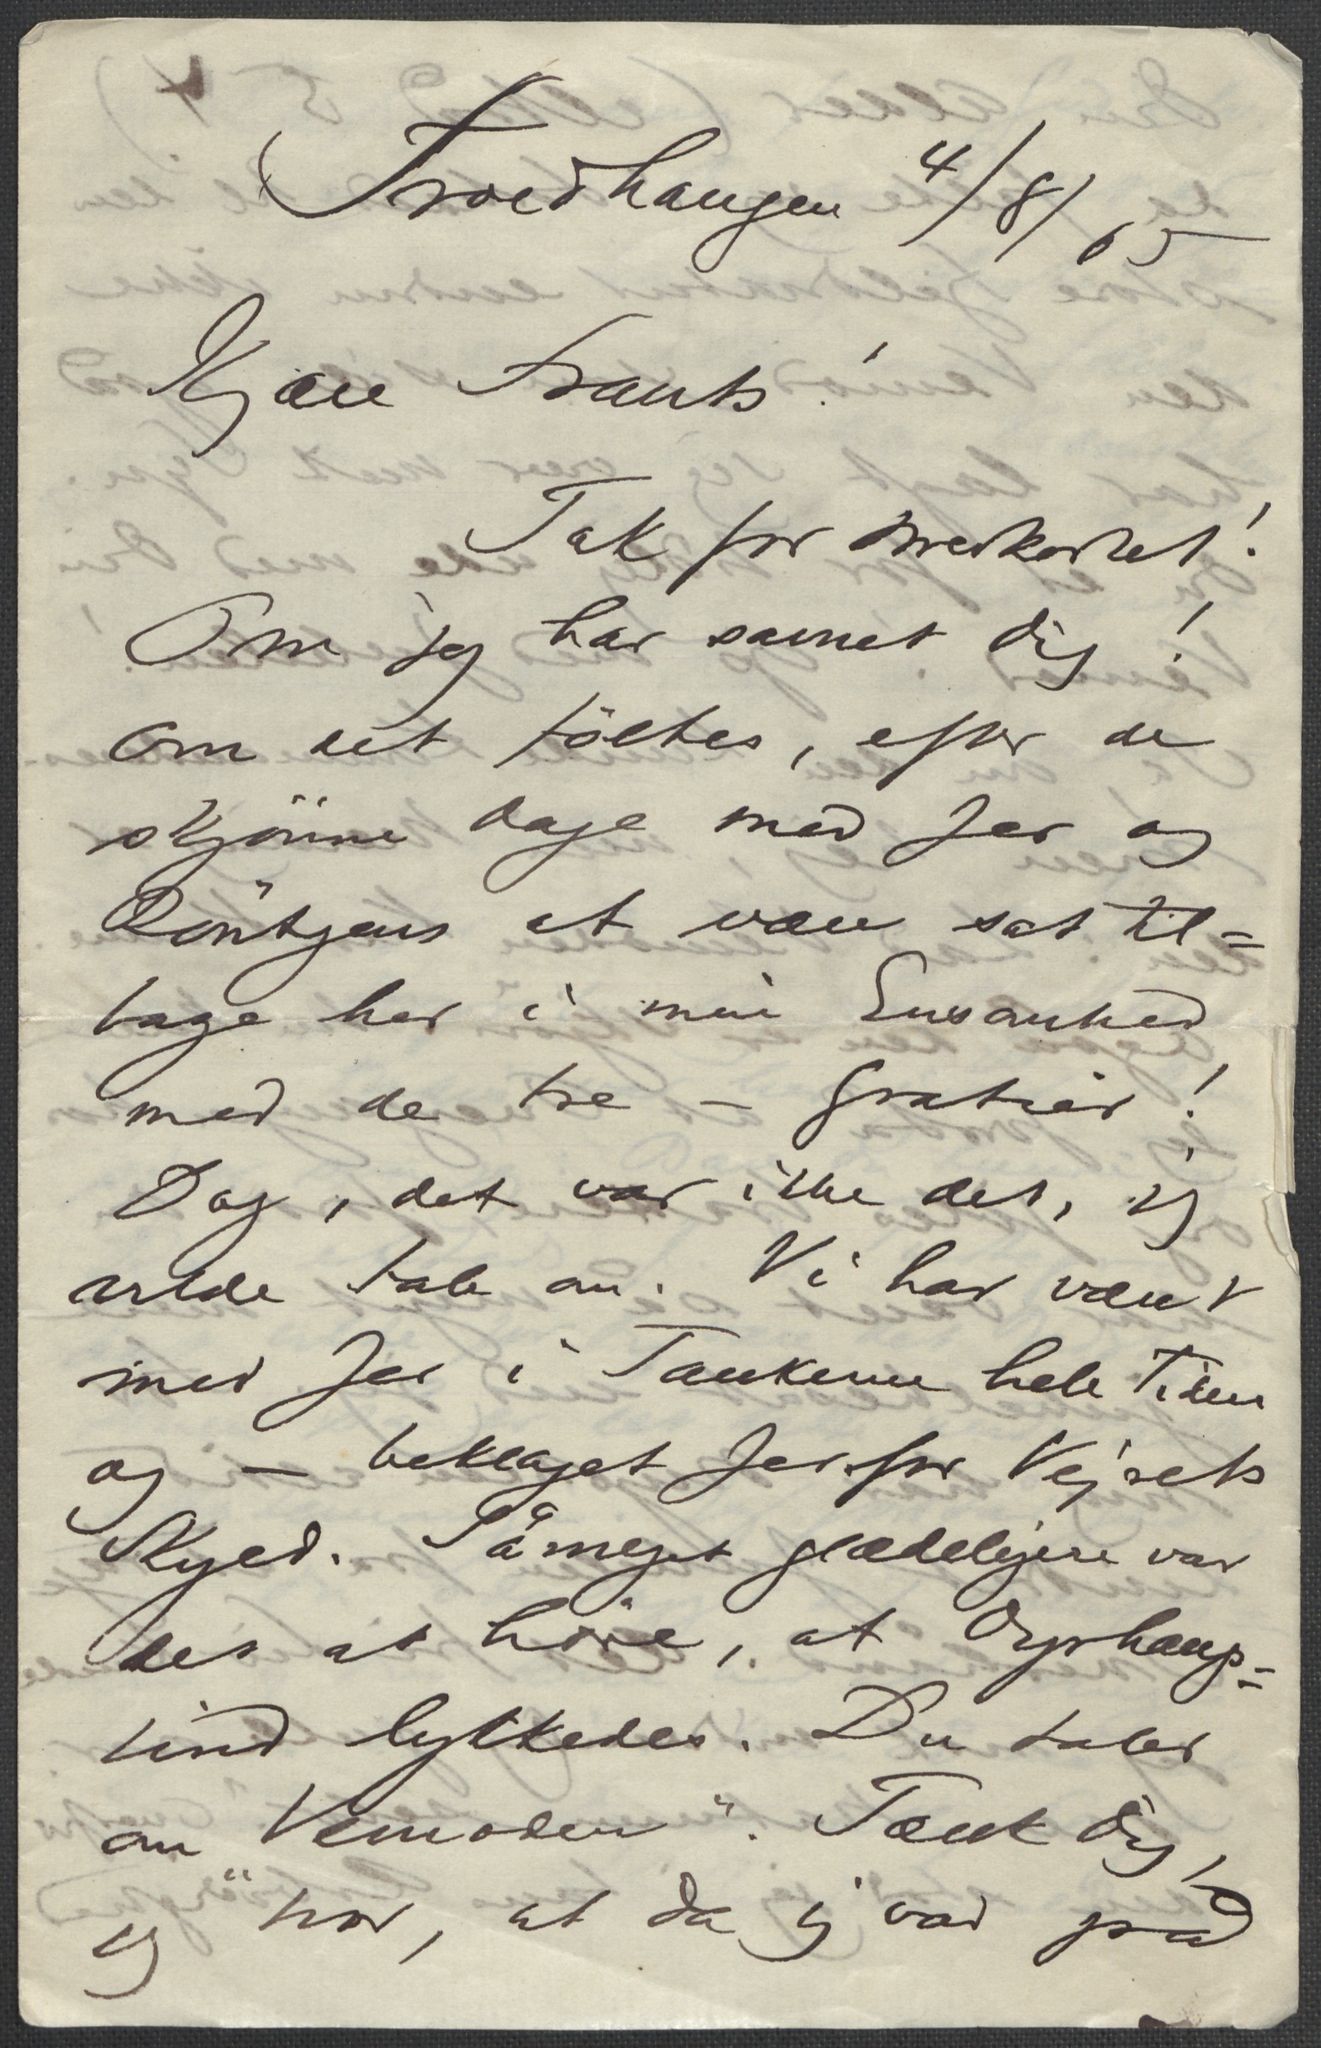 Troldhaugen 4/8/05
Kjære Frants!
Tak for Brevkortet!
Om jeg har savnet Dig!
Om det föltes, efter de
skjönne Dage med Jer og
Röntgens at være sat til-
bage her i min Ensomhed
med de tre – Gratier!
Dog, det var ikke det, jeg
vilde tale om. Vi har været
med Jer i Tankerne hele Tiden
og – beklaget Jer for Vejrets
Skyld. Såmeget glædeligere var
det at höre, at Dyrhaugs-
tind lykkedes. Du taler
om "Vemoden". Tænk Dig,
jeg tror, at da jeg var på